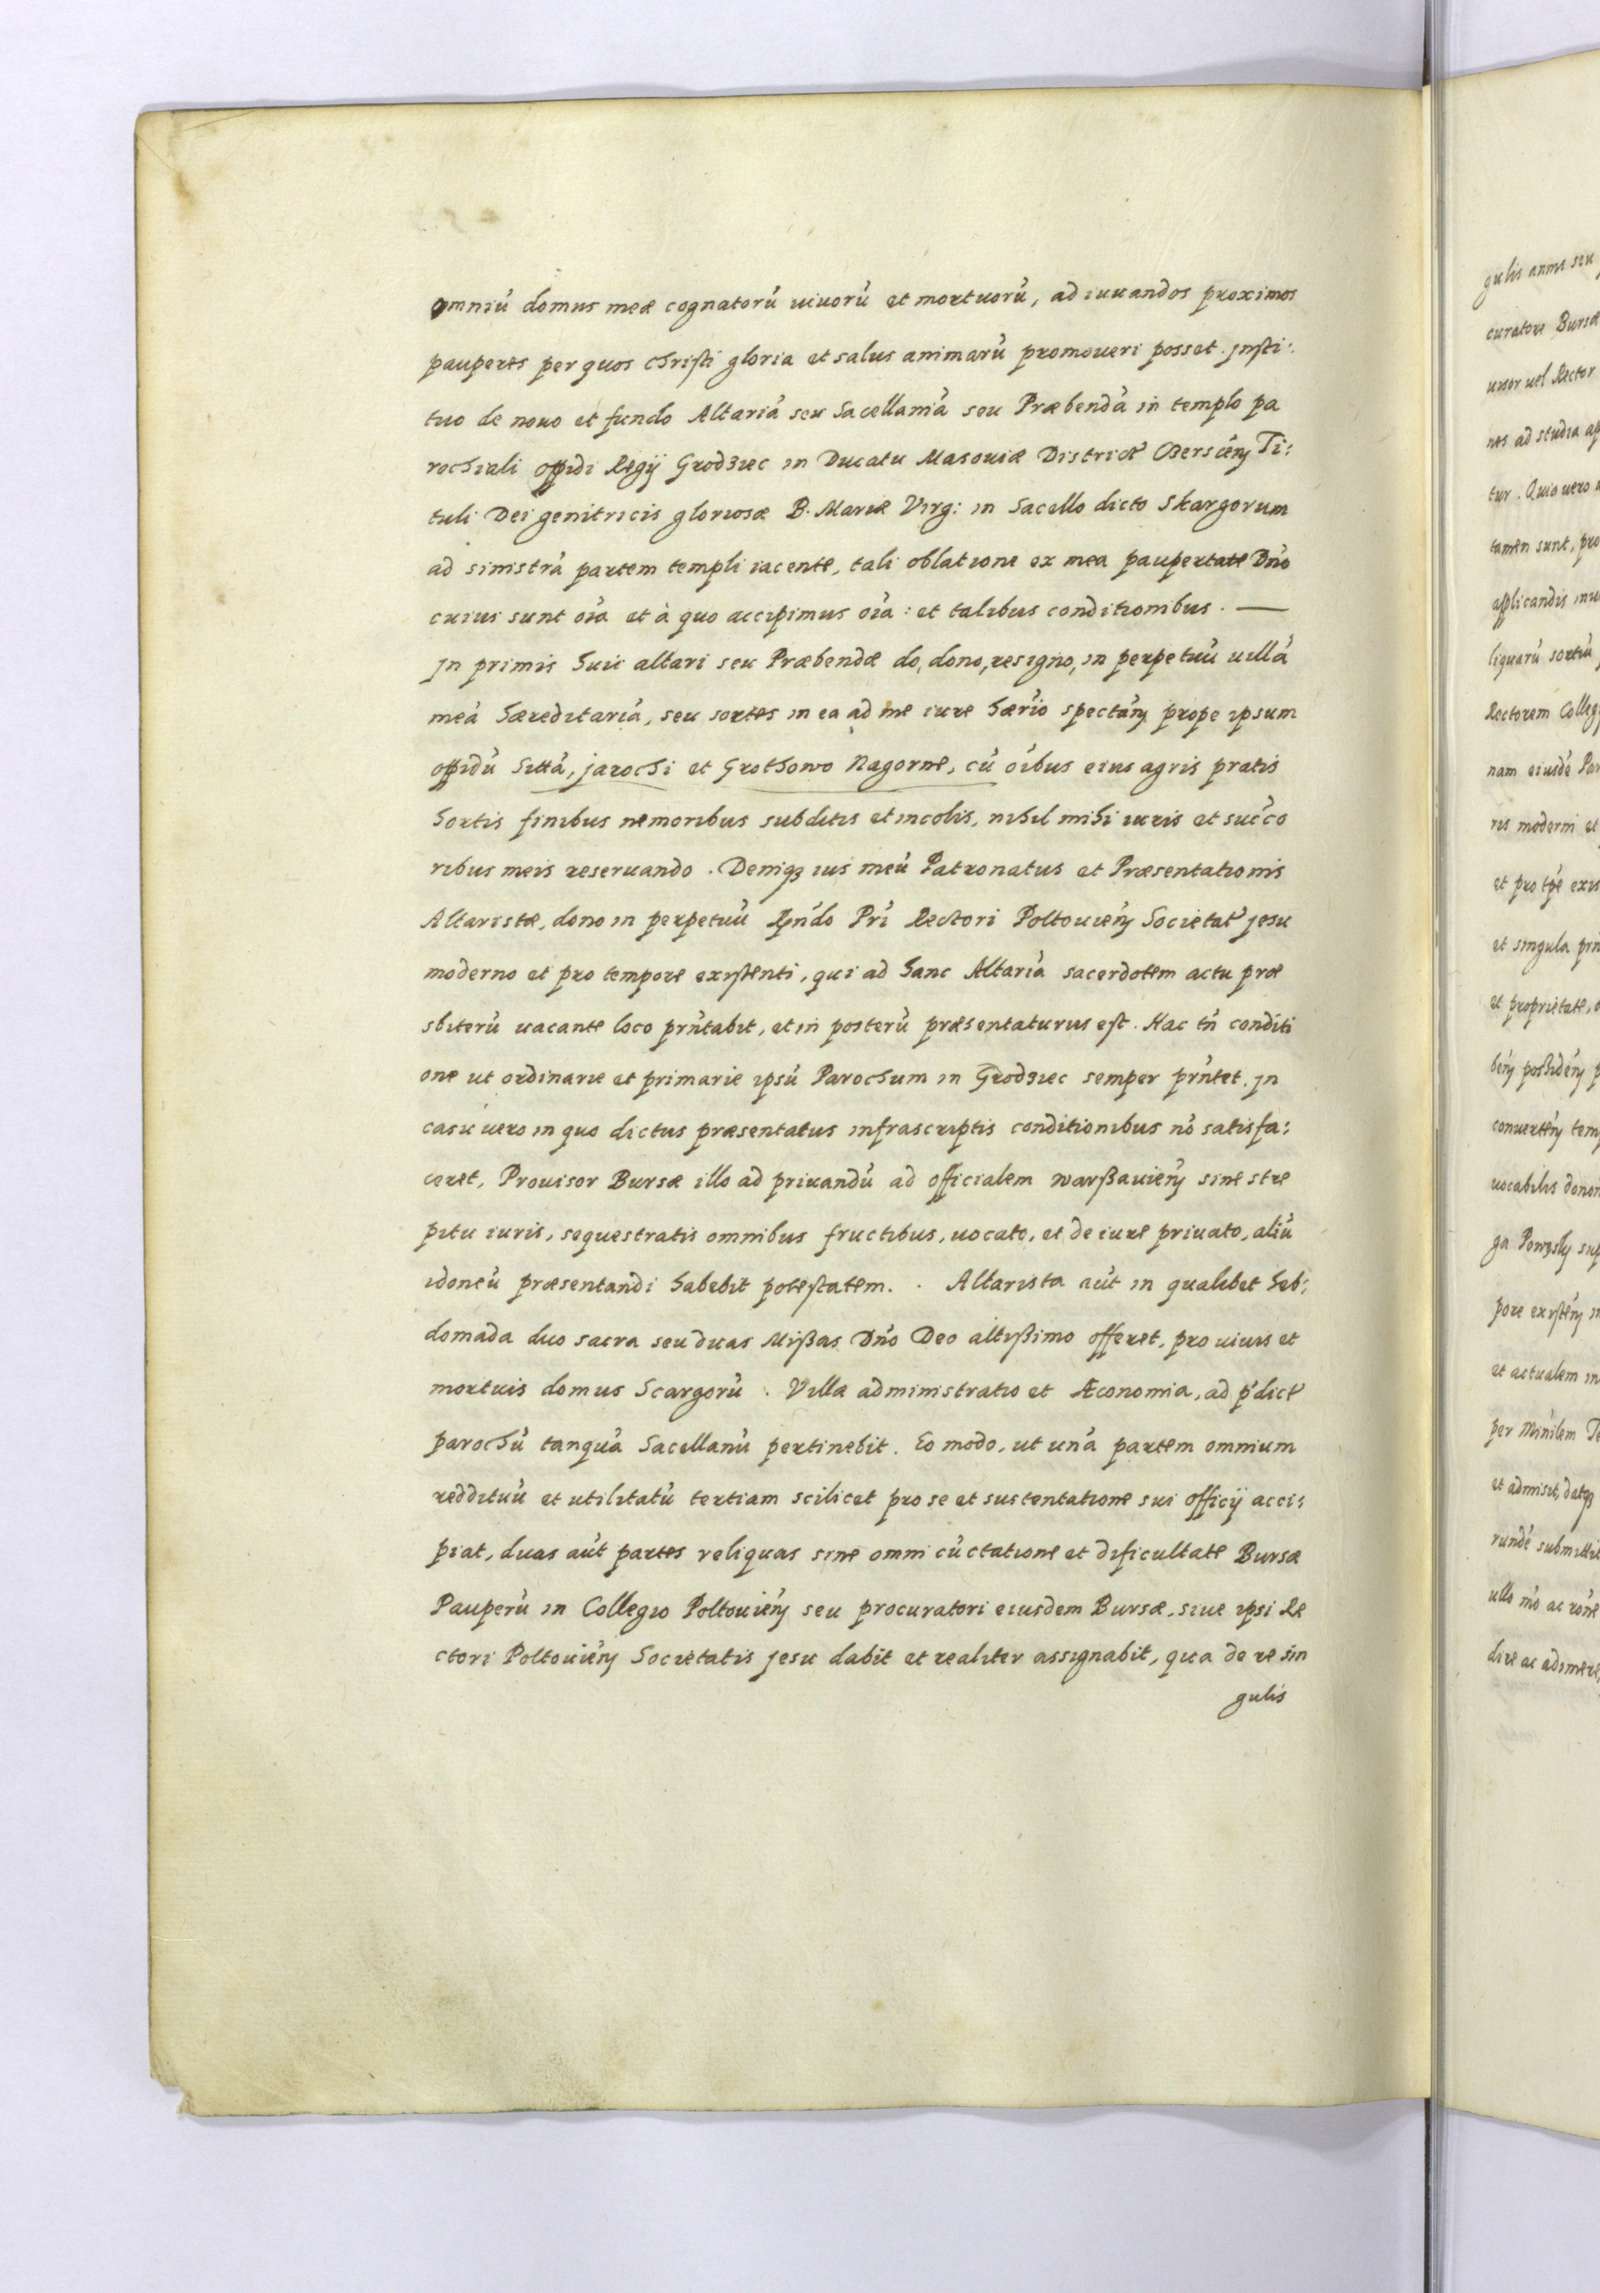 omniũ domus meæ cognatorũ viuorũ et mortuorũ, adiuuandos proximos
pauperes per quos christi gloria et salus animarũ promoueri posset. insti:
tuo de nouo et fundo Altariã seu Sacellaniã seu Præbendã in templo pa
rochiali oppidi Regij Grodziec in Ducatu Masouiæ District' Ti:
tuli Dei genitricis gloriosæ B. Mariæ Virg: in Sacello dicto Skargorum
ad sinistrã partem templi iacente, tali oblatione ex mea paupertate Dño
cuius sunt oĩa et à quo accipimus oĩa: et talibus conditionibus. —
jn primis huic altari seu Præbendæ do, dono, resigno, in perpetuũ uillã
meã hæreditariã, seu sortes in ea ad me iure hær̃io spectañ prope ipsum
oppidũ sittã, jarochi et Grothowo Nagorne, cũ oĩbus eius agris pratis
hortis finibus nemoribus subditis et incolis, nihil mihi iuris et suc̃co
ribus meis reseruando. Deniqз ius meũ Patronatus et Præsentationis
Altaristæ, dono in perpetuũ Rñdo Prĩ Rectori Poltouień Societat' jesu
moderno et pro tempore existenti, qui ad hanc Altariã sacerdotem actu præ
sbiterũ uacante loco prñtabit, et in posterũ præsentaturus est. Hac tñ conditi
one ut ordinarie et primarie ipsũ Parochum in Grodziec semper prñtet. jn
casu uero in quo dictus præsentatus infrascriptis conditionibus nõ satisfa:
ceret, Prouisor Bursæ illo ad priuandũ ad officialem warßauień sine stre
pitu iuris, sequestratis omnibus fructibus, uocato, et de iure priuato, aliũ
idoneũ præsentandi habebit potestatem. . Altarista aũt in qualibet heb:
domada duo sacra seu duas Mißas Dño Deo altißimo offeret, pro uiuis et
mortuis domus Scargorũ. Villæ administratio et Æconomia, ad p̃dict'
parochũ tanquã Sacellanũ pertinebit. Eo modo, ut unã partem omnium
reddituũ et utilitatũ tertiam scilicet pro se et sustentatione sui officij acci:
piat, duas aũt partes reliquas sine omni cũctatione et dificultate Bursæ
Pauperũ in Collegio Poltouień seu procuratori eiusdem Bursæ, siue ipsi Re
ctori Poltouień Societatis jesu dabit et realiter assignabit, qua de re sin
gulis
gulis annis seu
curatore Bursæ
uel Rector
nes ad studia ap
tur. Quia uero
tamen sunt, pro
applicandis
liquarũ sortiũ
Rectorem Colleg
nam eiusdẽ Par
ris moderni et
et pro tp̃e exis
et singula
et proprietate,
conuerteñ temp
uocabilis donon
pore existeñ in
et actualem in
et admisit, datqз
rundẽ submittit
ullo mõ ac rõne
dire ac adimere,